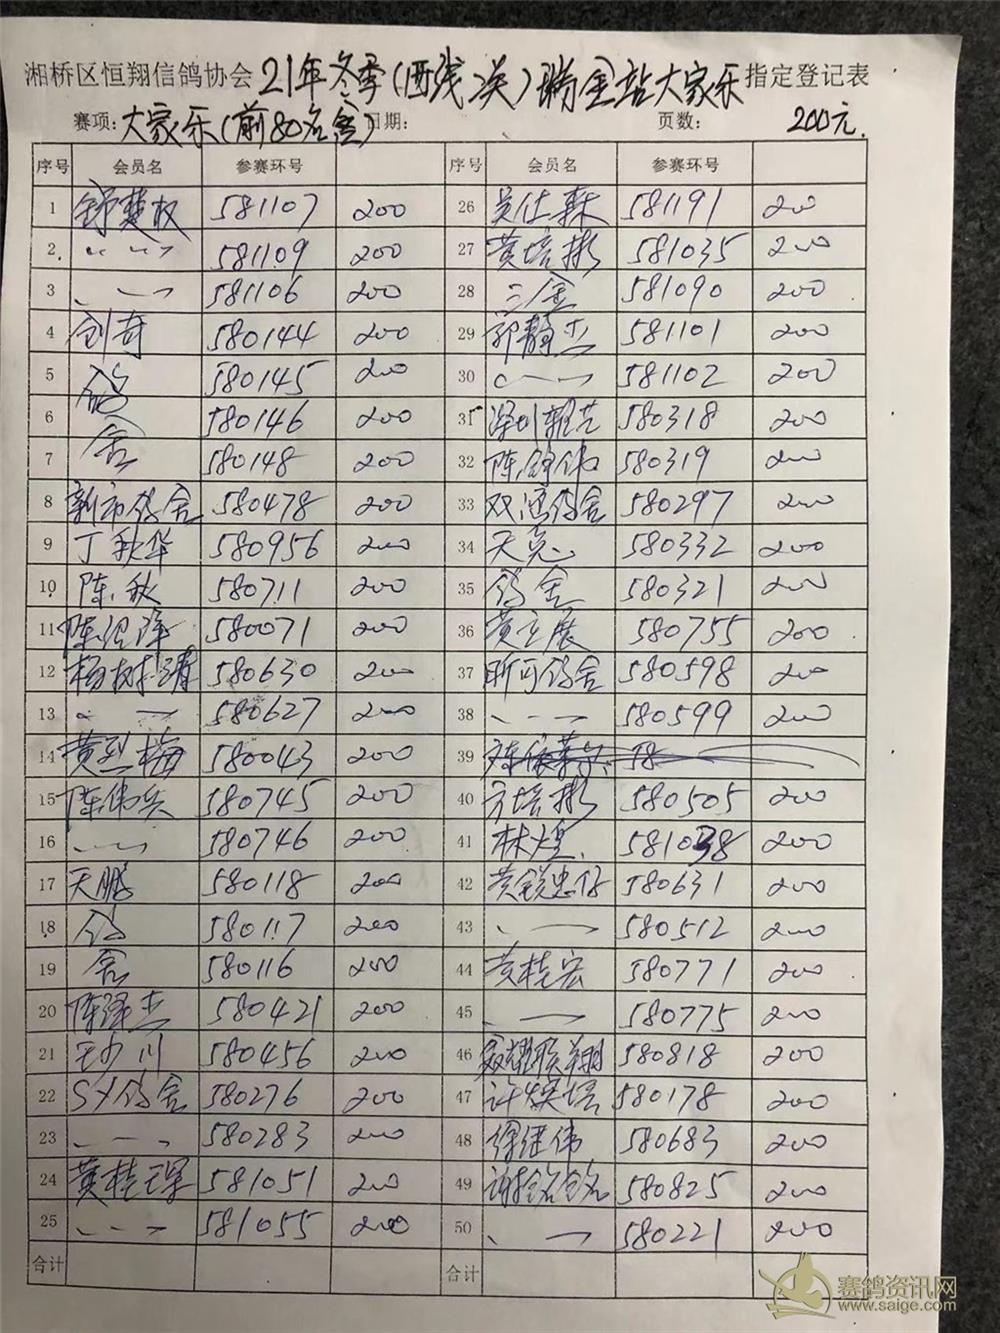 湘桥区恒翔信鸽协会21年冬季(西线决)瑞金站大家乐指定登记表
赛项:大家乐(前80名舍)日期: 页数: 200元
序号 会员名 参赛环号 序号 会员名 参赛环号
1 581107 200 26 吴仕森 581191 200
2 〃 〃 581109 200 27 黄培彬 581035 200
3 581106 200 28 三金 581090 200
4 创奇 580144 200 29 郭静杰 581101 200
5 鸽 580145 200 30 581102 200
6 舍 580146 200 31 深圳 580318 200
7 580148 200 32 陈 伟 580319 200
8 新市鸽舍 580478 200 33 双 鸽舍 580297 200
9 丁秋华 580956 200 34 天 580332 200
10 陈秋 580711 200 35 鸽舍 580321 200
11 陈 580071 200 36 黄立展 580755 200
12 杨树清 580630 200 37 昕可鸽舍 580598 200
13 580627 200 38 580599 200
14 黄烈梅 580043 200 39 58
15 陈伟兵 580745 200 40 方培彬 580505 200
16 580746 200 41 林煌 581038 200
17 天鹏 580118 200 42 黄锐忠 580631 200
18 鸽 580117 200 43 580512 200
19 舍 580116 200 44 黄桂宏 580771 200
20 陈泽杰 580421 200 45 580775 200
21 王少川 580456 200 46 翔 580818 200
22 SY鸽舍 580276 200 47 许焕 580178 200
23 580283 200 48 徐继伟 580683 200
24 黄桂 581051 200 49 谢 580825 200
25 581055 200 50 580221 200
合计 合计
赛鸽资讯网
www.saige.com